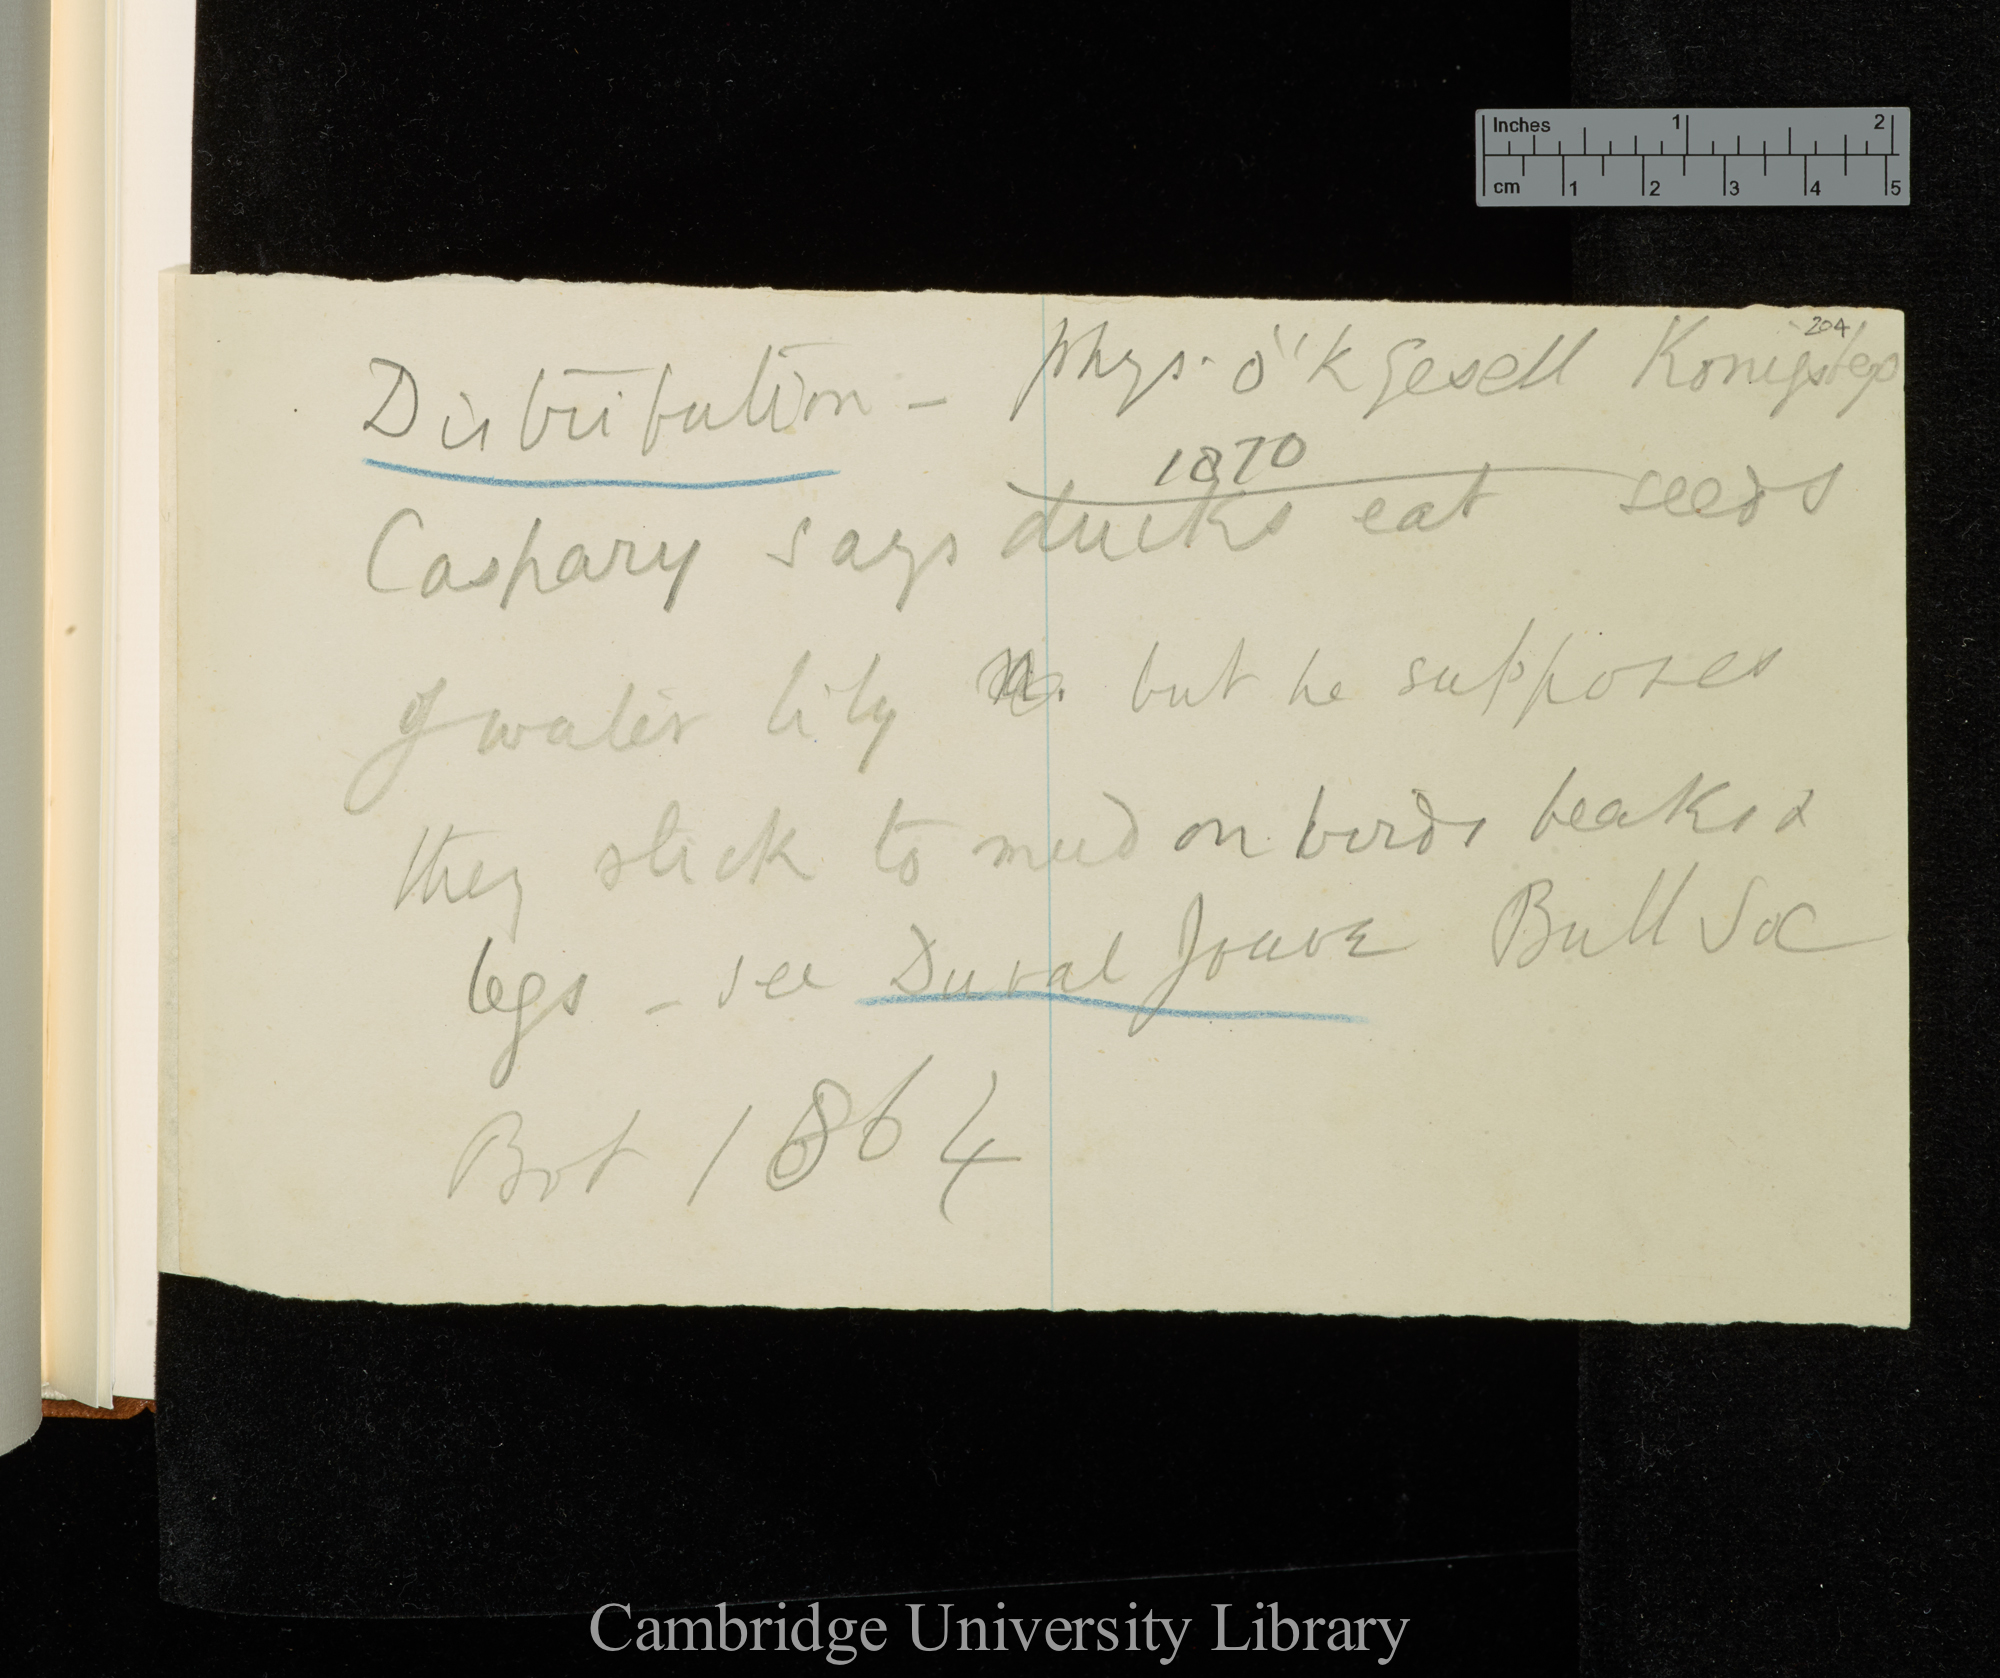 Inches 1 2
cm 1 2 3 4 5
204
Distribution – Phys. ö'k Gesell Konigsbeg
1870
Caspary says ducks eat seeds
of water lily but he supposes
they stick to mud on birds beaks &
legs – see Duval Jouve Bull Soc
Bot 1864
Cambridge University Library